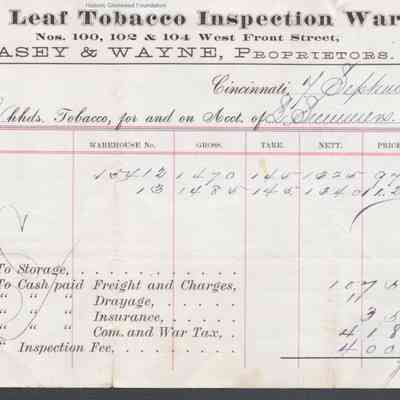 Historic Glenwood Foundation
Leaf Tobacco Inspection War
Nos. 100, 102 & 104 West Front Street,
ASEY & WAYNE, PROPRIETORS.
Cincinnati, 7 Septem
hhds. Tobacco, for and on Acct. of S. Summers
WAREHOUSE No. GROSS. TARE. NETT. PRICE
15412 1470 145 1325 97
13 1485 145 1340 11.2
To Storage,
To Cash paid Freight and Charges, 107
" " " Drayage, 11
" " " Insurance, 3
" " " Com. and War Tax, 418
" Inspection Fee, 400